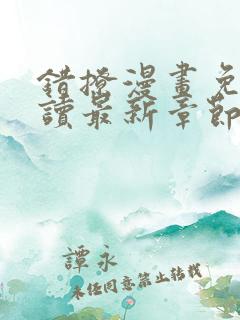 錯撩漫畫免
讀最新章節
譚永
未經同意禁止轉載